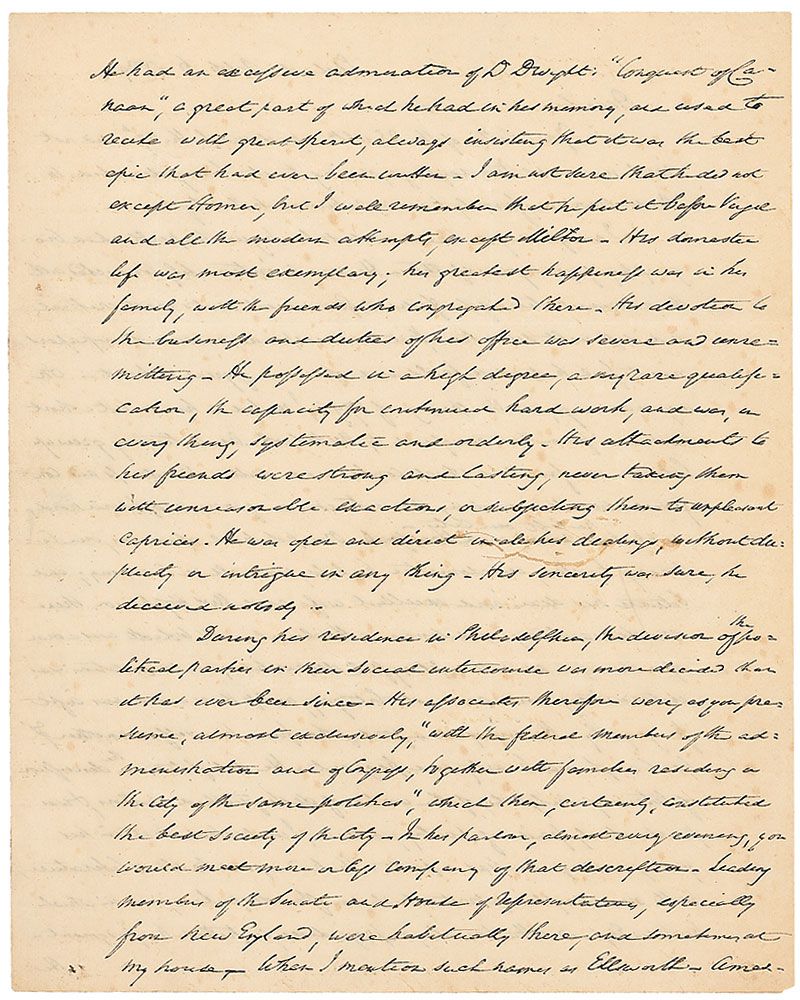 He had an excessive admiration of D Dwight's "Conquest of Ca-
naan", a great part of which he had in his memory, and used to
recite with great spirit, always insisting that it was the best
epic that had ever been written - I am not sure that he did not
except Homer, but I well remember that he put it before Virgil
and all the modern attempts, except Milton - His domestic
life was most exemplary; his greatest happiness was in his
family, with the friends who congregated there - His devotion to
the business and duties of his office was severe and unre-
mitting - He possessed in a high degree, a very rare qualifi-
cation, the capacity for continued hard work, and was, in
every thing, systematic and orderly - His attachments to
his friends were strong and lasting, never taxing them
with unreasonable exactions, or subjecting them to unpleasant
caprices. He was open and direct in all his dealings, without du-
plicity or intrigue in any thing - His sincerity was sure, he
deceived nobody --
During his residence in Philadelphia, the division of the po-
litical parties in their social intercourse was more decided than
it has ever been since - His associates therefore were, as you pre-
sume, almost exclusively, "with the federal members of the ad-
ministration and of Congress, together with families residing in
the City of the same politics", which then, certainly, constituted
the best society of the City - In his parlour, almost every evening, you
would meet more or less company of that description - Leading
members of the Senate and House of representatives, especially
from New England, were habitually there, and sometimes at
my house - When I mention such names as Ellsworth - Ames -